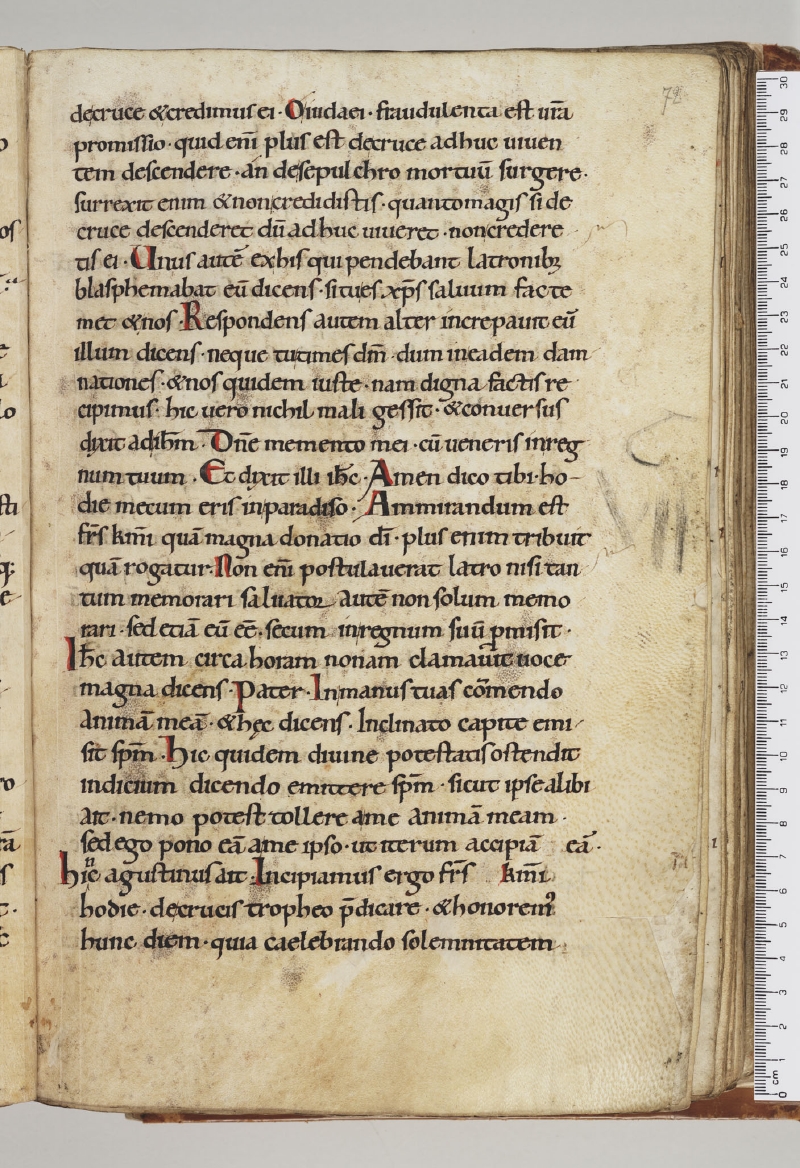 72
decruce & credimus ei · O iudaei · fraudulenta est ura̅
promissio · quid eni̅ plus est decruce adhuc uiuen
tem descendere · an desepulchro mortuu̅ surgere ·
surrexit enim & non credidistis · quanto magis si de
cruce descenderet du̅ adhuc uiueret · non credere
tis ei · Unus aute̅ exhis qui pendebant latronibꝫ
blasphemabat eu̅ dicens · si tu es xp̅s saluum fac te
met & nos · Respondens autem alter increpauit eu̅
illum dicens · neque tu times dm̅ · dum in eadem dam
nationes · & nos quidem iuste · nam digna factis re
cipimus · hic uero nichil mali gessit · & conuersus
dixit ad ihm̅ · Dn̅e memento mei · cu̅ ueneris in reg
num tuum · Et dixit illi ih̅c · Amen dico tibi · ho-
die mecum eris in paradiso · Ammirandum est
fr̅s km̅i qua̅ magna donatio di̅ · plus enim tribuit
qua̅ rogatur · Non eni̅ postulauerat latro nisi tan
tum memorari saluator aute̅ non solum memo
rari · sed etia̅ eu̅ ee̅ · secum in regnum suu̅ p̲misit ·
Ih̅c autem circa horam nonam clamauit uoce
magna dicens · Pater · In manus tuas co̅mendo
anima̅ mea̅ · & hęc dicens · Inclinato capite emi
sit sp̅m · Hic quidem diuine potestatis ostendit
indicium dicendo emittere sp̅m · sicut ipse alibi
ait · nemo potest tollere a me anima̅ meam ·
sed ego pono ea̅ a me ipso · ut iterum accipia̅ ea̅ ·
hic agustinus ait · Incipiamus ergo fr̅s km̅i
hodie · decrucis tropheo p̅dicare · & honorem᾽
hunc diem · quia caelebrando solemnitatem